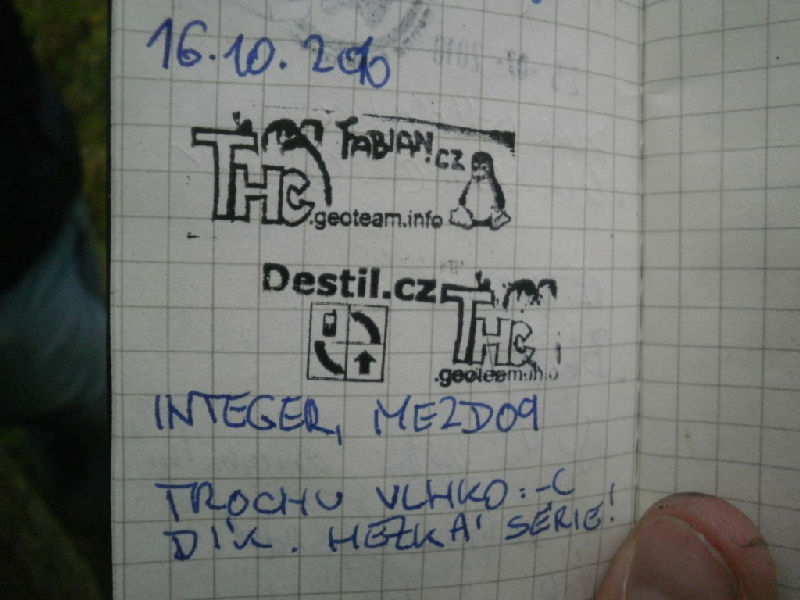 16.10.2010
THC FABIAN.CZ
.geoteam.info
Destil.cz THC
.geoteam.info
INTEGER, MEZD09
TROCHU VLHKO :-C
DÍK. HEZKÁ SÉRIE!